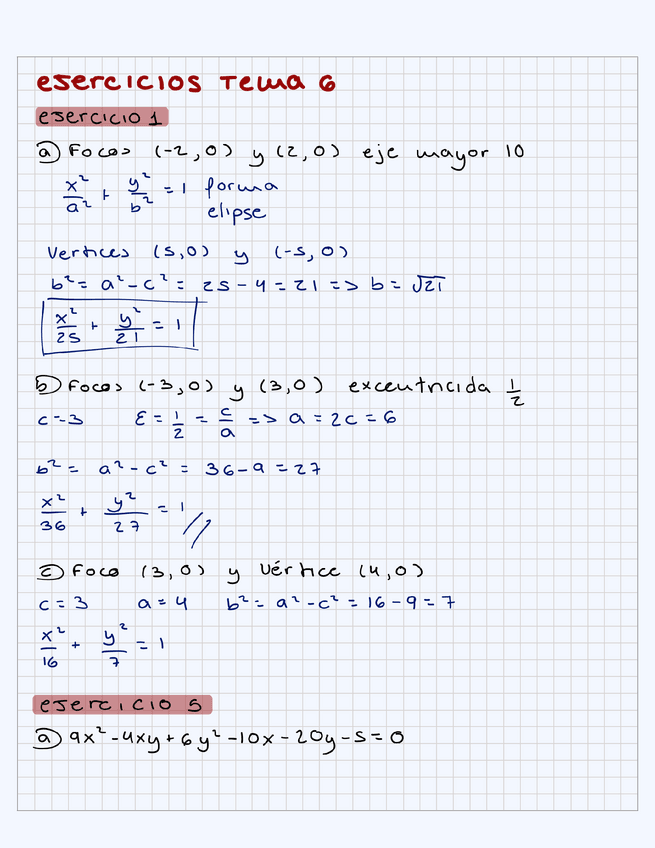 ejercicios Tema 6
ejercicio 1
a) Focos (-2,0) y (2,0) eje mayor 10
x²/a² + y²/b² = 1 forma
elipse
Vertices (5,0) y (-5,0)
b² = a² - c² = 25 - 4 = 21 => b = √21
x²/25 + y²/21 = 1
b) Focos (-3,0) y (3,0) excentricida 1/2
c = 3 ε = 1/2 = c/a => a = 2c = 6
b² = a² - c² = 36 - 9 = 27
x²/36 + y²/27 = 1 //
c) Foco (3,0) y Vértice (4,0)
c = 3 a = 4 b² = a² - c² = 16 - 9 = 7
x²/16 + y²/7 = 1
ejercicio 5
a) 9x² - 4xy + 6y² - 10x - 20y - 5 = 0